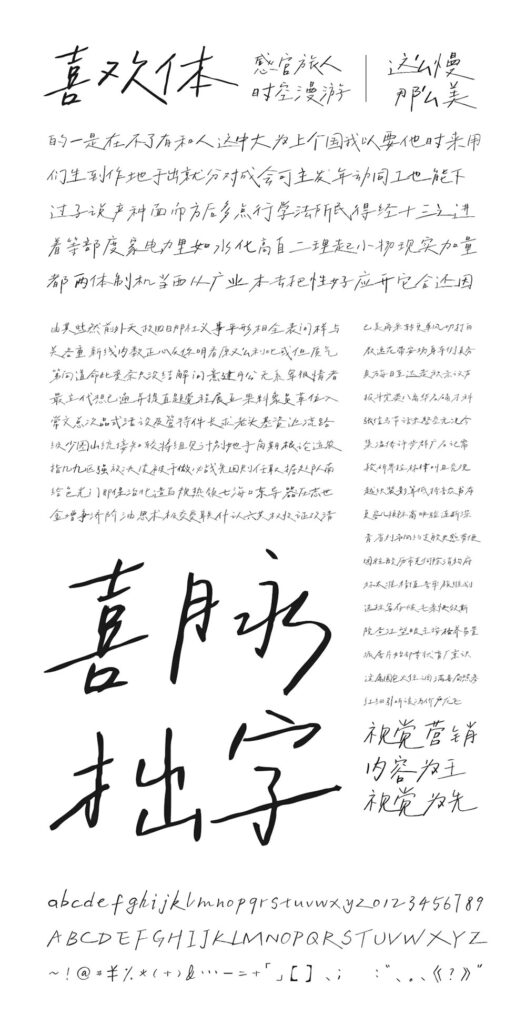 喜欢体
感官旅人
时空漫游
这么慢
那么美
的一是在不了有和人这中大为上个国我以要他时来用
们生到作地于出就分对成会可主发年动同工也能下
过子说产种面而方后多点行学法所民得经十三之进
着等部度家电力里如水化高自二理起小物现实加量
都两体制机当西从广业本去把性好应开它合还因
由其些然前外天政四日那社义事平形相全表间样与
关各重新线内数正心反你明看原又么利比或但质气
第向道命此变条只没结解问意建月公无系军很情者
最立代想已通并提直题党程展五果料象员革位入
常文总次品式活设及管特件长求老头基资边流路
级少图山统接知较将组见计别她手角期根论运农
指几九区强放决西被干做必战先回则任取据处队南
给色光门即保治北造百规热领七海口东导器压志世
金增争济阶油思术极交受联什认六共权收证改清
己美再采转更单风切打白
教速花带安场身车例真务
具万每目至达走积示议声
报斗完类八离华名确才科
张信马节话米整空元况今
集温传许步群广石记需
段研界拉林律叫且究观
越织装影算低持音众书布
喜脉
拙字
视觉营销
内容为王
视觉为先
abcdefghijklmnopqrstuvwxyz0123456789
ABCDEFGHIJKLMNOPQRSTUVWXYZ